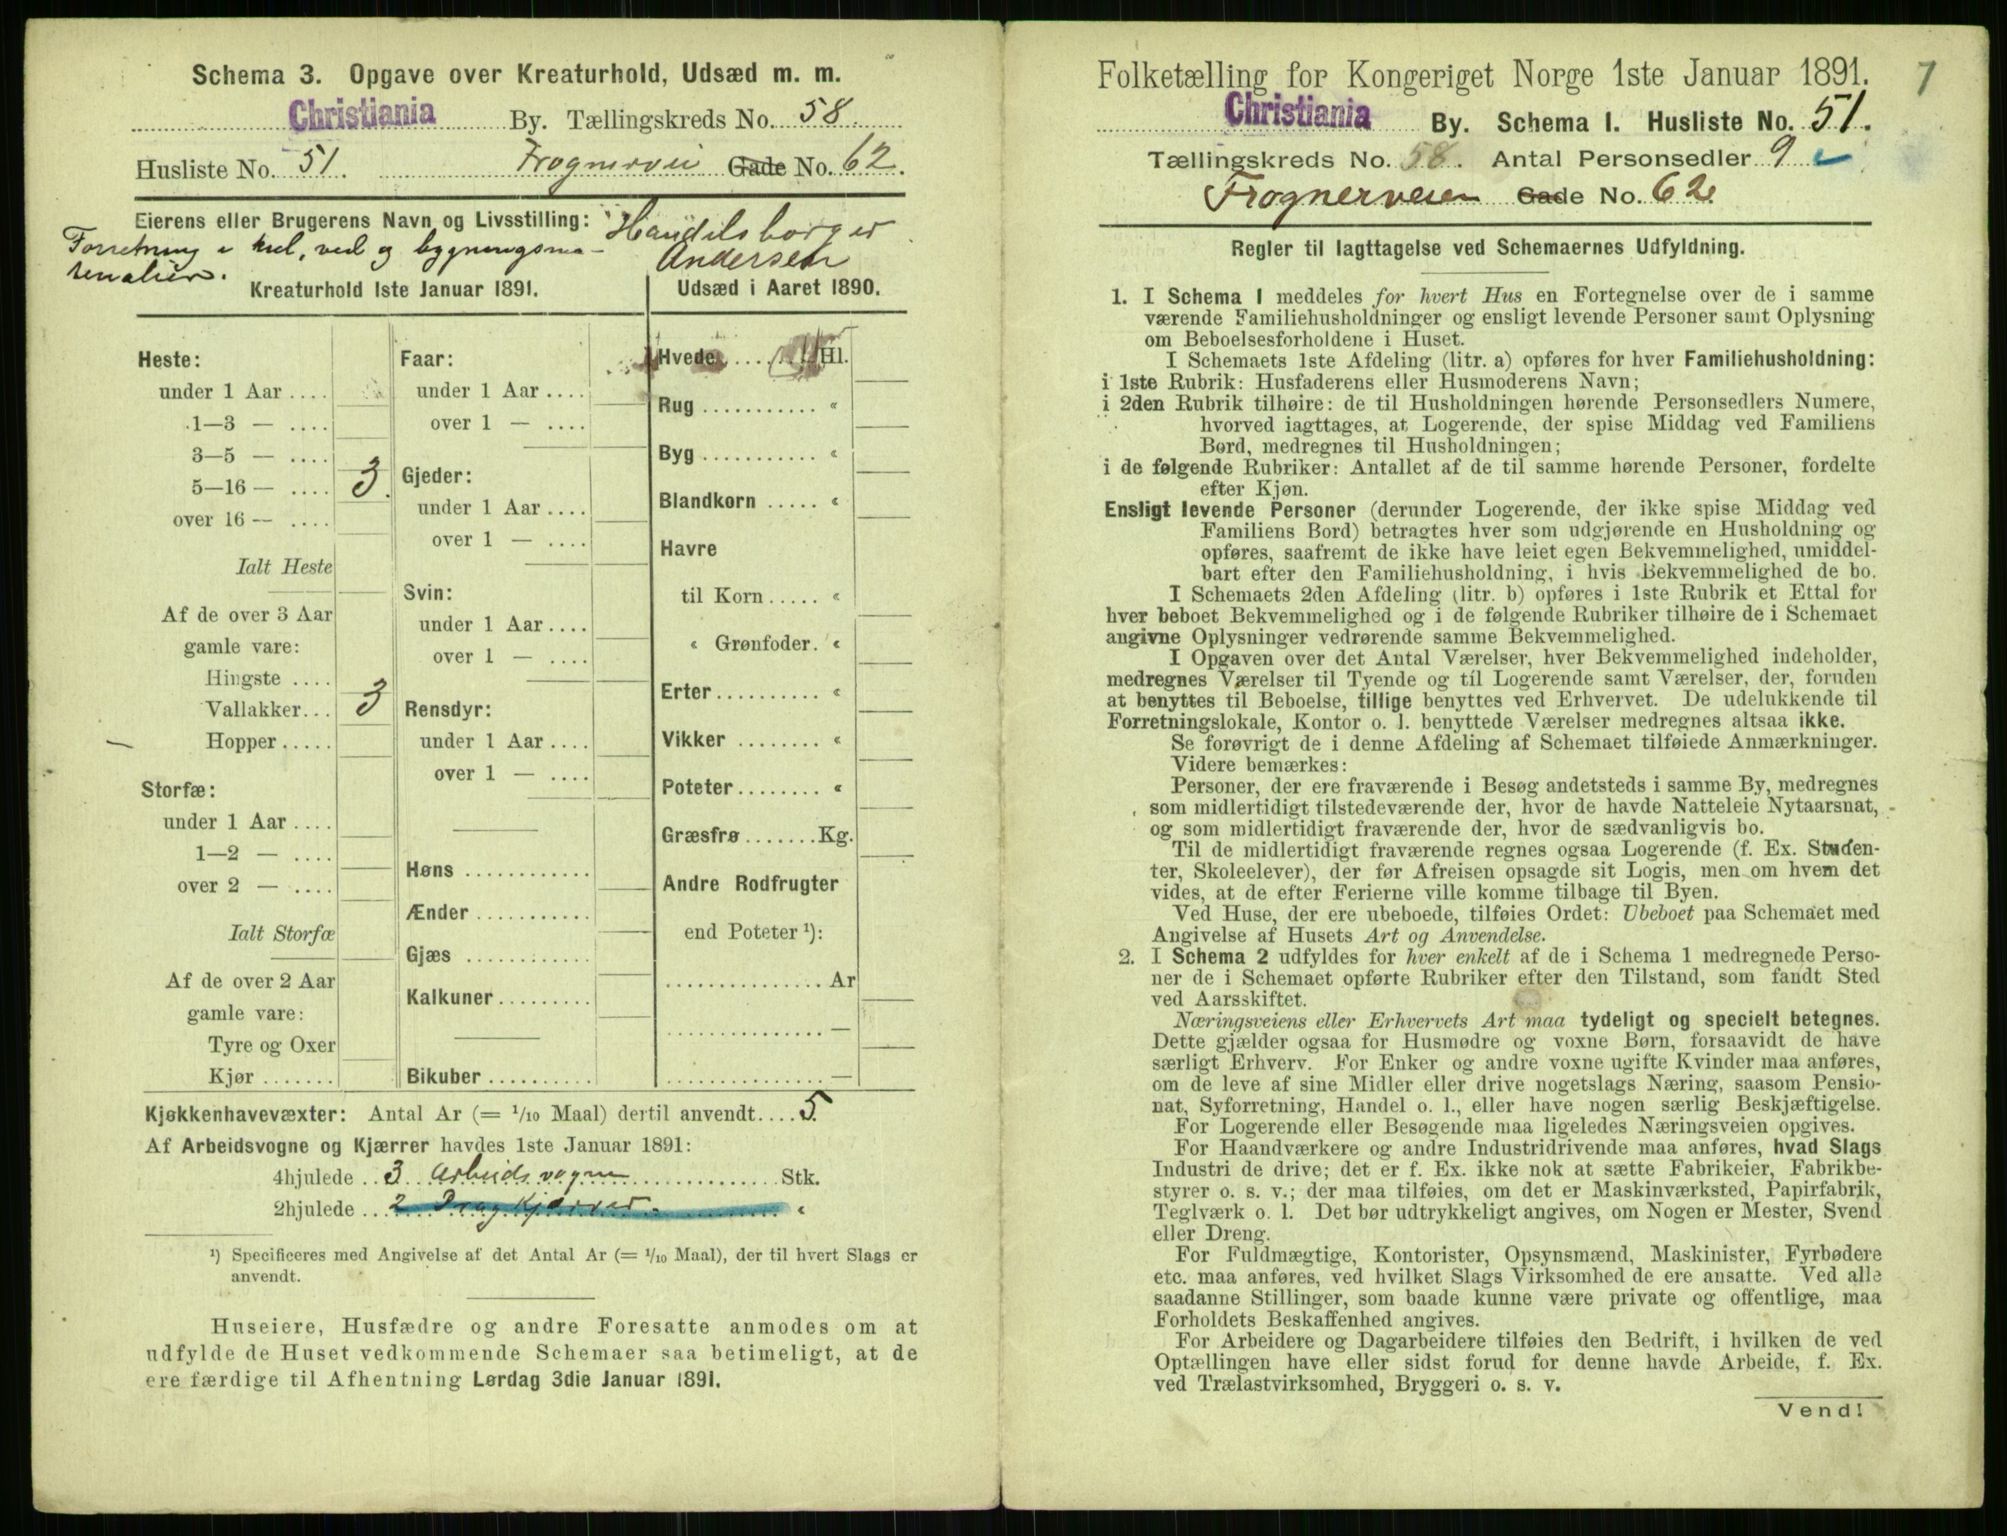 Schema 3. Opgave over Kreaturhold, Udsæd m. m.
Christiania By. Tællingskreds No. 58.
Husliste No. 51. Frognervei Gade No. 62.
Eierens eller Brugerens Navn og Livsstilling: Handelsborger
Forretning i kul, ved og bygningsma- Andersen
terialier.
Kreaturhold 1ste Januar 1891.
Heste:
under 1 Aar ....
1—3 — ....
3—5 — ....
5—16 — .... 3.
over 16 — ....
Ialt Heste
Af de over 3 Aar
gamle vare:
Hingste ....
Vallakker... 3
Hopper .....
Storfæ:
under 1 Aar ....
1—2 — ....
over 2 — ....
Ialt Storfæ
Af de over 2 Aar
gamle vare:
Tyre og Oxer
Kjør .......
Faar:
under 1 Aar ....
over 1 — ....
Gjeder:
under 1 Aar ....
over 1 — ....
Svin:
under 1 Aar ....
over 1 — ....
Rensdyr:
under 1 Aar ....
over 1 — ....
Høns ............
Ænder ...........
Gjæs ............
Kalkuner.........
Bikuber ..........
Udsæd i Aaret 1890.
Hvede ....... Hl.
Rug ........... «
Byg ........... «
Blandkorn ..... «
Havre
til Korn ..... «
« Grønfoder. «
Erter.......... «
Vikker ........ «
Poteter ........ «
Græsfrø ....... Kg.
Andre Rodfrugter
end Poteter ¹):
............... Ar
............... —
............... —
Kjøkkenhavevæxter: Antal Ar (= 1/10 Maal) dertil anvendt.... 5.
Af Arbeidsvogne og Kjærrer havdes 1ste Januar 1891:
4hjulede .. 3 Arbeidsvogne ............... Stk.
2hjulede ... 2 Dragkjærrer. ........ «
¹) Specificeres med Angivelse af det Antal Ar (= 1/10 Maal), der til hvert Slags er
anvendt.
Huseiere, Husfædre og andre Foresatte anmodes om at
udfylde de Huset vedkommende Schemaer saa betimeligt, at de
ere færdige til Afhentning Lørdag 3die Januar 1891.
Folketælling for Kongeriget Norge 1ste Januar 1891. 7
Christiania By. Schema 1. Husliste No. 51.
Tællingskreds No. 58. Antal Personsedler 9
Frognerveien Gade No. 62.
Regler til Iagttagelse ved Schemaernes Udfyldning.
1. I Schema 1 meddeles for hvert Hus en Fortegnelse over de i samme
værende Familiehusholdninger og ensligt levende Personer samt Oplysning
om Beboelsesforholdene i Huset.
I Schemaets 1ste Afdeling (litr. a) opføres for hver Familiehusholdning:
i 1ste Rubrik: Husfaderens eller Husmoderens Navn;
i 2den Rubrik tilhøire: de til Husholdningen hørende Personsedlers Numere,
hvorved iagttages, at Logerende, der spise Middag ved Familiens
Bord, medregnes til Husholdningen;
i de følgende Rubriker: Antallet af de til samme hørende Personer, fordelte
efter Kjøn.
Ensligt levende Personer (derunder Logerende, der ikke spise Middag ved
Familiens Bord) betragtes hver som udgjørende en Husholdning og
opføres, saafremt de ikke have leiet egen Bekvemmelighed, umiddel-
bart efter den Familiehusholdning, i hvis Bekvemmelighed de bo.
I Schemaets 2den Afdeling (litr. b) opføres i 1ste Rubrik et Ettal for
hver beboet Bekvemmelighed og i de følgende Rubriker tilhøire de i Schemaet
angivne Oplysninger vedrørende samme Bekvemmelighed.
I Opgaven over det Antal Værelser, hver Bekvemmelighed indeholder,
medregnes Værelser til Tyende og til Logerende samt Værelser, der, foruden
at benyttes til Beboelse, tillige benyttes ved Erhvervet. De udelukkende til
Forretningslokale, Kontor o. l. benyttede Værelser medregnes altsaa ikke.
Se forøvrigt de i denne Afdeling af Schemaet tilføiede Anmærkninger.
Videre bemærkes:
Personer, der ere fraværende i Besøg andetsteds i samme By, medregnes
som midlertidigt tilstedeværende der, hvor de havde Natteleie Nytaarsnat,
og som midlertidigt fraværende der, hvor de sædvanligvis bo.
Til de midlertidigt fraværende regnes ogsaa Logerende (f. Ex. Studen-
ter, Skoleelever), der før Afreisen opsagde sit Logis, men om hvem det
vides, at de efter Ferierne ville komme tilbage til Byen.
Ved Huse, der ere ubeboede, tilføies Ordet: Ubeboet paa Schemaet med
Angivelse af Husets Art og Anvendelse.
2. I Schema 2 udfyldes for hver enkelt af de i Schema 1 medregnede Perso-
ner de i Schemaet opførte Rubriker efter den Tilstand, som fandt Sted
ved Aarsskiftet.
Næringsveiens eller Erhvervets Art maa tydeligt og specielt betegnes.
Dette gjælder ogsaa for Husmødre og voxne Børn, forsaavidt de have
særligt Erhverv. For Enker og andre voxne ugifte Kvinder maa anføres,
om de leve af sine Midler eller drive nogetslags Næring, saasom Pensio-
nat, Syforretning, Handel o. l., eller have nogen særlig Beskjæftigelse.
For Logerende eller Besøgende maa ligeledes Næringsveien opgives.
For Haandværkere og andre Industridrivende maa anføres, hvad Slags
Industri de drive; det er f. Ex. ikke nok at sætte Fabrikeier, Fabrikbe-
styrer o. s. v.; der maa tilføies, om det er Maskinværksted, Papirfabrik,
Teglværk o. l. Det bør udtrykkeligt angives, om Nogen er Mester, Svend
eller Dreng.
For Fuldmægtige, Kontorister, Opsynsmænd, Maskinister, Fyrbødere
etc. maa anføres, ved hvilket Slags Virksomhed de ere ansatte. Ved alle
saadanne Stillinger, som baade kunne være private og offentlige, maa
Forholdets Beskaffenhed angives.
For Arbeidere og Dagarbeidere tilføies den Bedrift, i hvilken de ved
Optællingen have eller sidst forud for denne havde Arbeide, f. Ex.
ved Trælastvirksomhed, Bryggeri o. s. v.
Vend!